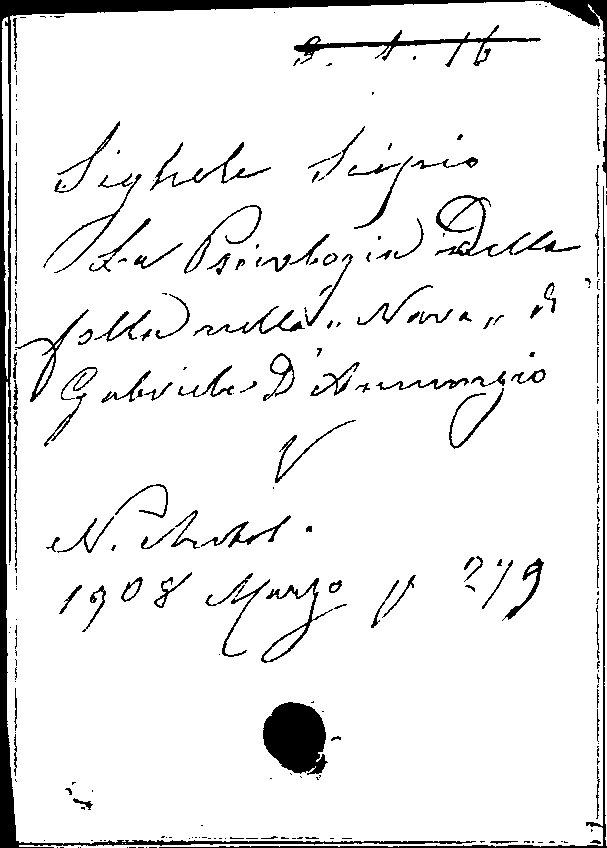 3. 1. 16
Sighele Scipio
La Psicologia della
folla nella „Nave„ di
Gabriele D'Annunzio
V
N. Antol.
1908 Marzo p 279